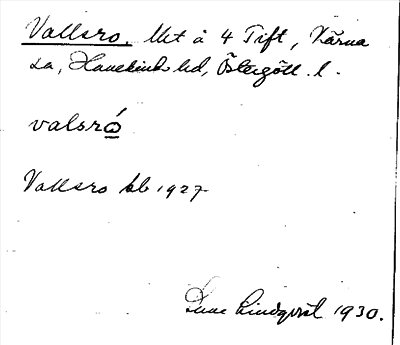 Vallsro, Ut å 4 Tift, Kärna
sn, Hanekinds hd, Östergötl. l.
valsró
Vallsro kb 1927
Sune Lindqvist 1930.